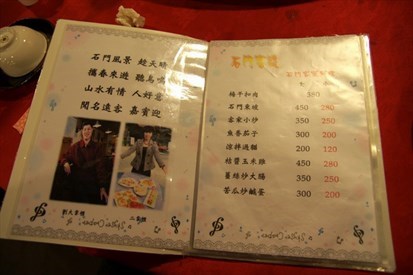 石門風景 趁天晴
攜春來遊 聽鳥鳴
山水有情 人好意
聞名遠客 嘉賓迎
梅干扣肉 380
石門東坡 450 280
客家小炒 350 250
魚香茄子 300 200
涼拌過貓 200 120
桔醬玉米雞 450 280
薑絲炒大腸 350 250
苦瓜炒鹹蛋 300 200